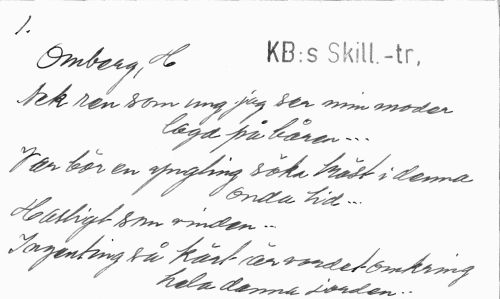 1.
Omberg, H
KB:s Skill.-tr,
Ack ren som ung jag ser min moder
lagd på båren ...
Var bör en yngling söka tröst i denna
onda tid ...
Hastigt som vinden ..
Ingenting så kärt är vardet omkring
hela denna jorden ..